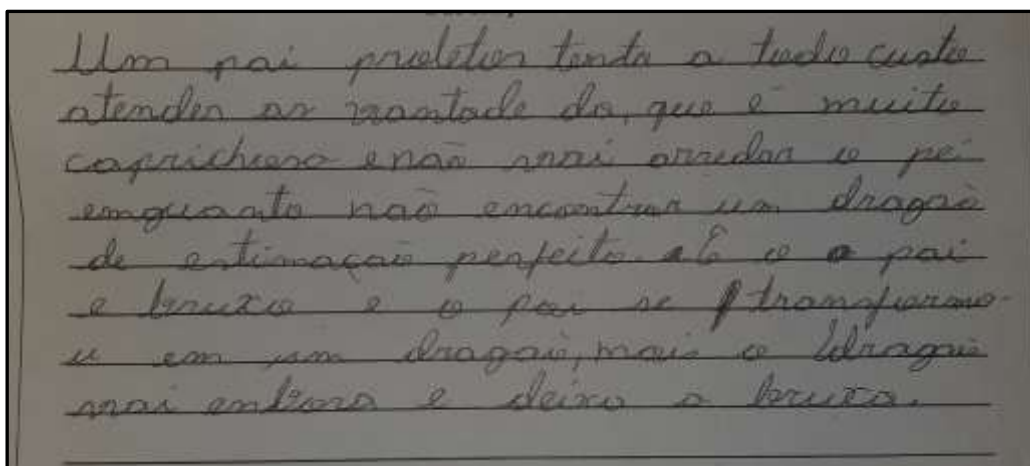 Um pai proletor tenta a tudo custo
atender as vantade da, que é muito
caprichosa e não vai arredar o pé
emquanto não encontrar um dragaõ
de estimaçaõ perfeito. E o o pai
e bruxo e o pai se transformo-
u em um dragaõ, mais o dragaõ
vai embora e deixo a bruxa.